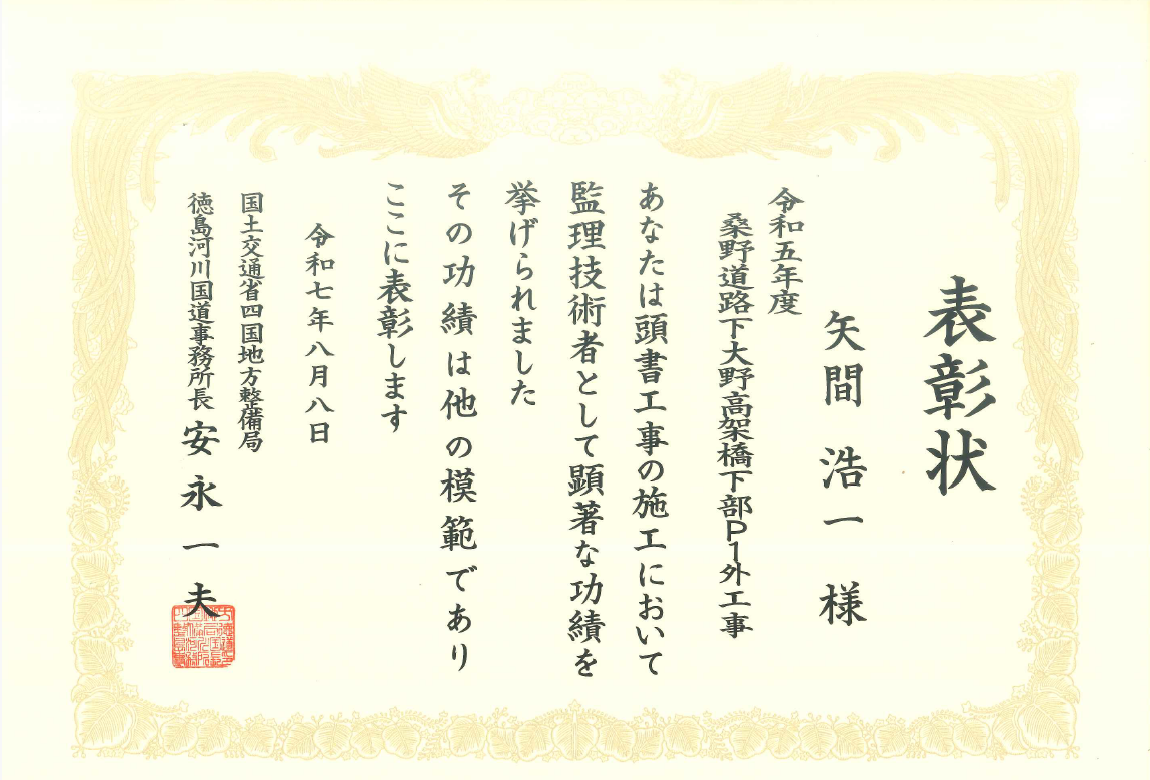 表彰状
矢間浩一様
令和五年度
桑野道路下大野高架橋下部P1外工事
あなたは頭書工事の施工において
監理技術者として顕著な功績を
挙げられました
その功績は他の模範であり
ここに表彰します
令和七年八月八日
国土交通省四国地方整備局
徳島河川国道事務所長 安永一夫